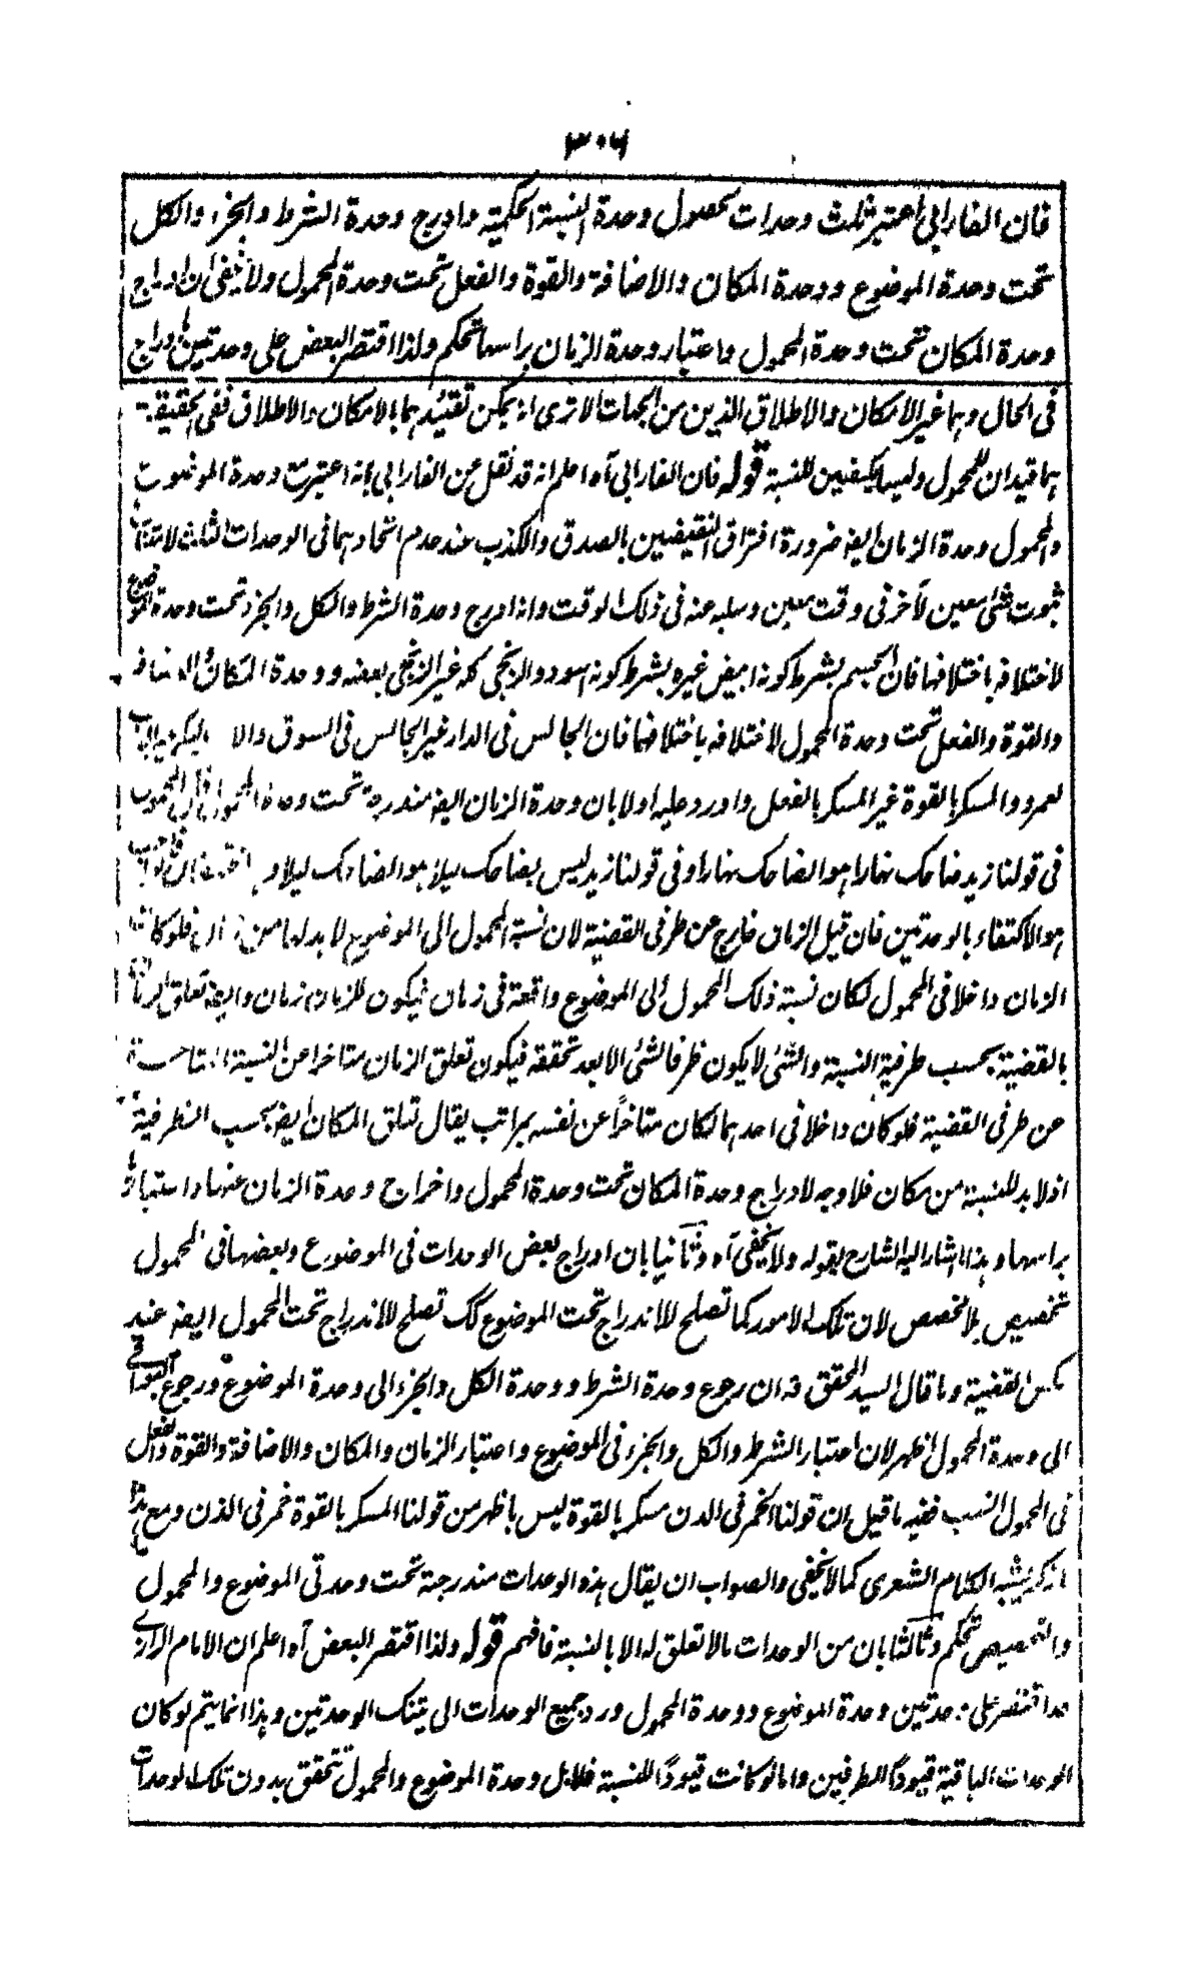 ٣٠٦
فان الفارابي اعتبر ثلث وحدات لحصول وحدة النسبة الحكمية وادرج وحدة الشرط والجزء والكل
تحت وحدة الموضوع ووحدة المكان والاضافة والقوة والفعل تحت وحدة المحمول ولا يخفى ان ادراج
وحدة المكان تحت وحدة المحمول واعتبار وحدة الزمان براسها تحكم ولذا اقتصر البعض على وحدتين وادراج
فى الحال وهما غير الامكان والاطلاق الذين من الجهات الا ترى انه يمكن تقييدهما بالامكان والاطلاق ففى الحقيقة
هما قيدان للمحمول وليسا بكيفيين للنسبة قوله فان الفارابي آه اعلم انه قد نقل عن الفارابي بانه اعتبرت وحدة الموضوع
والمحمول وحدة الزمان ايضا ضرورة افتراق النقيضين بالصدق والكذب عند عدم اتحادهما فى الوحدات الثلث
ثبوت شئ معين لآخر فى وقت معين وسلبه عنه فى ذلك الوقت وانه ادرج وحدة الشرط والكل والجزء تحت وحدة الموضوع
لاختلافه باختلافها فان الجسم بشرط كونه ابيض غيره بشرط كونه اسود والزنجي كله غير الزنجي بعضه ووحدة المكان والاضافة
والقوة والفعل تحت وحدة المحمول لاختلافه باختلافها فان الجالس فى الدار غير الجالس فى السوق والاب لبكر غير الاب
لعمرو والمسكر بالقوة غير المسكر بالفعل واورد عليه اولا بان وحدة الزمان ايضا مندرجة تحت وحدة المحمول فان المحمول
فى قولنا زيد ضاحك نهارا هو الضاحك نهارا وفى قولنا زيد ليس بضاحك ليلا هو الضاحك ليلا
هو الاكتفاء بالوحدتين فان قيل الزمان خارج عن طرفى القضية لان نسبة المحمول الى الموضوع لا بد لها من زمان فلو كان
الزمان داخلا فى المحمول لكان نسبة ذلك المحمول الى الموضوع واقعة فى زمان فيكون للزمان زمان وايضا تعلق الزمان
بالقضية بحسب ظرفية النسبة والشئ لا يكون ظرفا لشئ الا بعد تحققه فيكون تعلق الزمان متاخرا عن النسبة المتاخرة
عن طرفى القضية فلو كان داخلا فى احدهما لكان متاخراً عن نفسه بمراتب يقال تعلق المكان ايضا بحسب الظرفية
اذ لا بد للنسبة من مكان فلا وجه لادراج وحدة المكان تحت وحدة المحمول واخراج وحدة الزمان عنها واعتبارها
براسها وهذا ما اشار اليه الشارح بقوله ولا يخفى آه وثانيا بان ادراج بعض الوحدات فى الموضوع وبعضها فى المحمول
تخصيص بلا مخصص لان تلك الامور كما تصلح للاندراج تحت الموضوع كك تصلح للاندراج تحت المحمول ايضا عند
عكس القضية وما قال السيد المحقق قه ان رجوع وحدة الشرط ووحدة الكل والجزء الى وحدة الموضوع ورجوع البواقى
الى وحدة المحمول اظهر لان اعتبار الشرط والكل والجزء فى الموضوع واعتبار الزمان والمكان والاضافة والقوة والفعل
فى المحمول انسب ففيه ما قيل ان قولنا الخمر فى الدن مسكر بالقوة ليس باظهر من قولنا المسكر بالقوة خمر فى الدن ومع هذا
ما ذكر يشبه الكلام الشعري كما لا يخفى والصواب ان يقال هذه الوحدات مندرجة تحت وحدتى الموضوع والمحمول
والتخصيص تحكم وثالثا بان من الوحدات ما لا تعلق له الا بالنسبة فافهم قوله ولذا اقتصر البعض آه اعلم ان الامام الرازى
اقتصر على وحدتين وحدة الموضوع ووحدة المحمول ورد جميع الوحدات الى تينك الوحدتين وهذا انما يتم لو كان
الوحدات الباقية قيوداً للطرفين واما لو كانت قيوداً للنسبة فلا بل وحدة الموضوع والمحمول تتحقق بدون تلك الوحدات